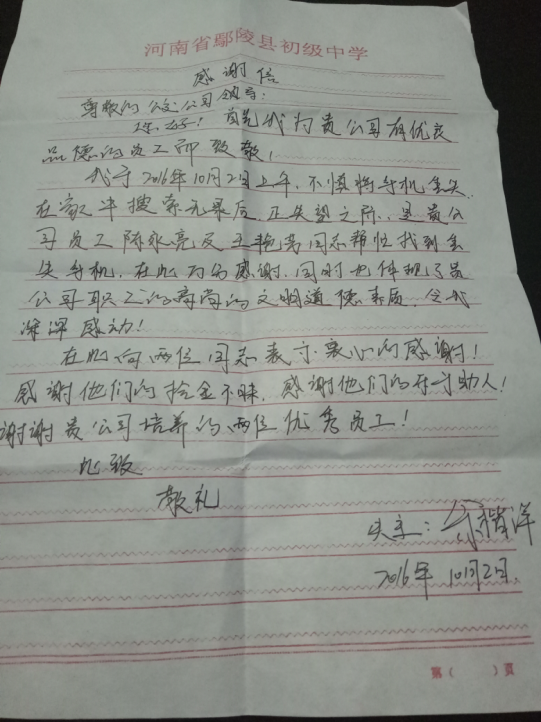 河南省鄢陵县初级中学
感谢信
尊敬的公交公司领导：
您好！首先我为贵公司有优良
品德的员工而致敬！
我于2016年10月2日上午，不慎将手机丢失
在家中搜索无果后，正失望之际，是贵公
司员工陈永亮及王艳芳同志帮忙找到丢
失手机，在此万分感谢，同时也体现了贵
公司职工的高尚的文明道德素质，令我
深深感动！
在此向两位同志表示衷心的感谢！
感谢他们的拾金不昧，感谢他们的助人！
谢谢贵公司培养的两位优秀员工！
此致
敬礼
失主：洋
2016年10月2日.
第（ ）页